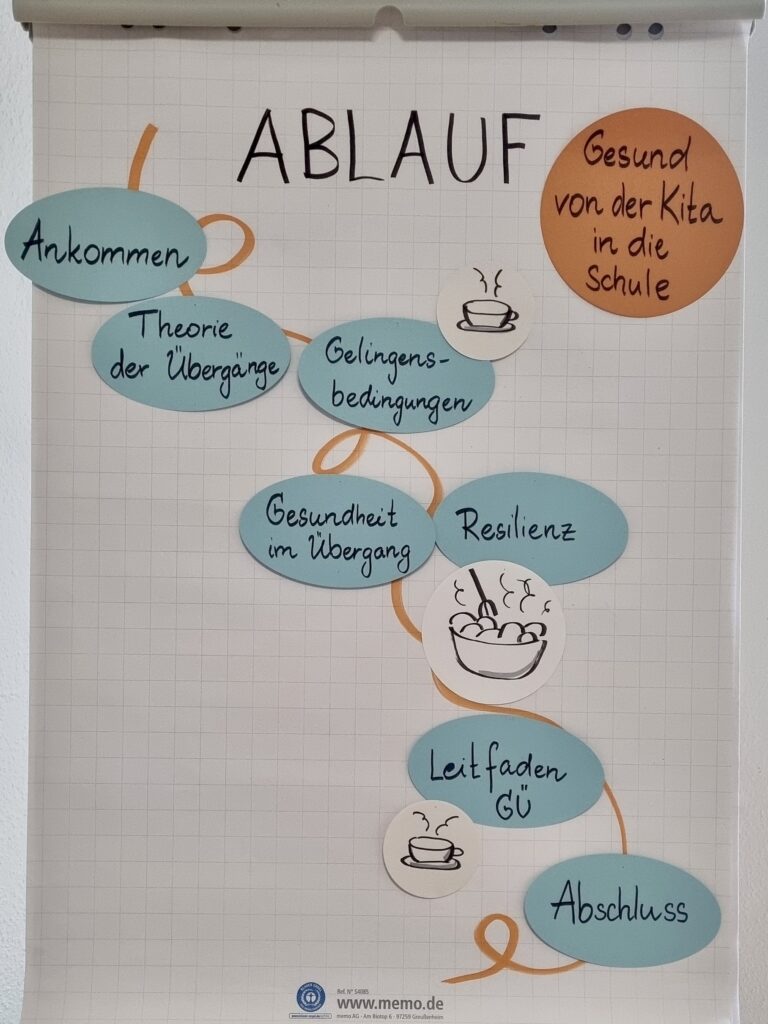 ABLAUF
Gesund
von der Kita
in die
Schule
Ankommen
Theorie
der Übergänge
Gelingens-
bedingungen
Gesundheit
im Übergang
Resilienz
Leitfaden
GÜ
Abschluss
Ref. N° S4985
www.memo.de
memo AG · Am Biotop 6 · 97259 Greußenheim